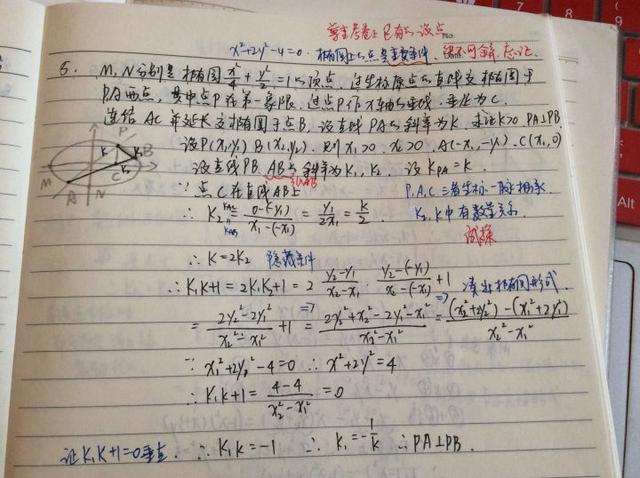 尊重尽量让已有的设点
x²+2y²-4=0. 椭圆上的点是重要条件. 绝不可舍、忘记.
5. M, N分别是椭圆x²/4+y²/2=1的顶点, 过坐标原点的直线交椭圆于
PA两点, 其中点P在第一象限, 过点P作x轴的垂线, 垂足为C.
连结AC 并延长交椭圆于点B, 设直线PA的斜率为K, 求证K>0 PA⊥PB.
设P(x₁,y₁) B(x₂,y₂), 则x₁>0 x₂>0 A(-x₁,-y₁), C(x₁,0)
设直线PB, AB的斜率为K₁, K₂. 设K_PA=K.
∵点C在直线AB上
P.A.C三者坐标一脉相承.
∴K₂=(0-(-y₁))/(x₁-(-x₁))=y₁/2x₁=k/2
K_AC
K_AB
K₂, K中有数学关系.
试探
∴K=2K₂ 隐藏条件
∴K₁K+1=2K₁K₂+1=2 (y₂-y₁)/(x₂-x₁)·(y₂-(-y₁))/(x₂-(-x₁))+1 凑出椭圆形式.
=(2y₂²-2y₁²)/(x₂²-x₁²)+1 ⇒ =(2y₂²+x₂²-2y₁²-x₁²)/(x₂²-x₁²) ⇒ =((x₂²+2y₂²)-(x₁²+2y₁²))/(x₂²-x₁²)
∵x₁²+2y₁²-4=0 ∴x²+2y²=4
∴K₁K+1=(4-4)/(x₂²-x₁²)=0
证K₁K+1=0垂直. ∴K₁K=-1 ∴K₁=-1/k ∴PA⊥PB.
P
K
B
K₁
C
K₂
M
A
N
Alt